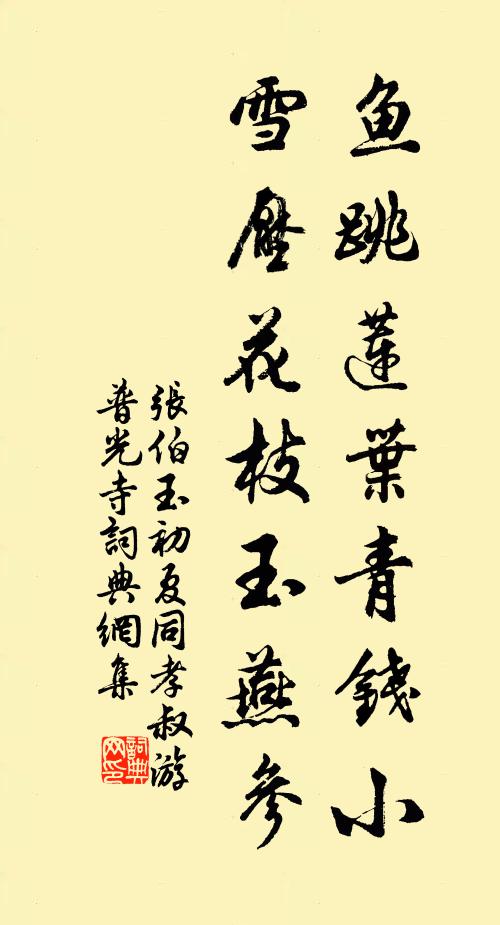 鱼跳蓮葉青錢小
雪壓花枝玉燕參
張伯玉初夏同孝叔游
普光寺詞典網集
詞典网印